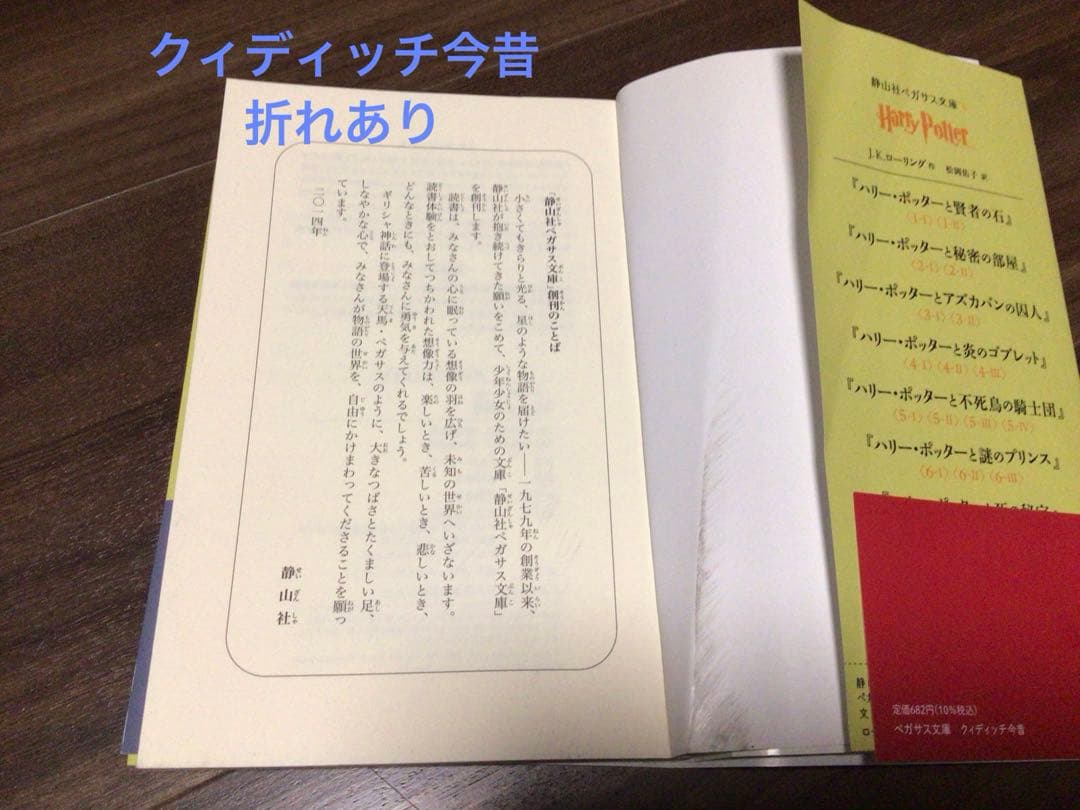 クィディッチ今昔
折れあり
「静山社ペガサス文庫」創刊のことば
小さくてもきらりと光る、星のような物語を届けたい――一九七九年の創業以来、
静山社が抱き続けてきた願いをこめて、少年少女のための文庫「静山社ペガサス文庫」
を創刊します。
読書は、みなさんの心に眠っている想像の羽を広げ、未知の世界へいざないます。
読書体験をとおしてつちかわれた想像力は、楽しいとき、苦しいとき、悲しいとき、
どんなときにも、みなさんに勇気を与えてくれるでしょう。
ギリシャ神話に登場する天馬・ペガサスのように、大きなつばさとたくましい足、
しなやかな心で、みなさんが物語の世界を、自由にかけまわってくださることを願っ
ています。
二〇一四年
静山社
静山社ペガサス文庫
Harry Potter
J.K.ローリング 作 松岡佑子 訳
『ハリー・ポッターと賢者の石』
〈1-I〉〈1-II〉
『ハリー・ポッターと秘密の部屋』
〈2-I〉〈2-II〉
『ハリー・ポッターとアズカバンの囚人』
〈3-I〉〈3-II〉
『ハリー・ポッターと炎のゴブレット』
〈4-I〉〈4-II〉〈4-III〉
『ハリー・ポッターと不死鳥の騎士団』
〈5-I〉〈5-II〉〈5-III〉〈5-IV〉
『ハリー・ポッターと謎のプリンス』
〈6-I〉〈6-II〉〈6-III〉
定価682円(10%税込)
ペガサス文庫 クィディッチ今昔